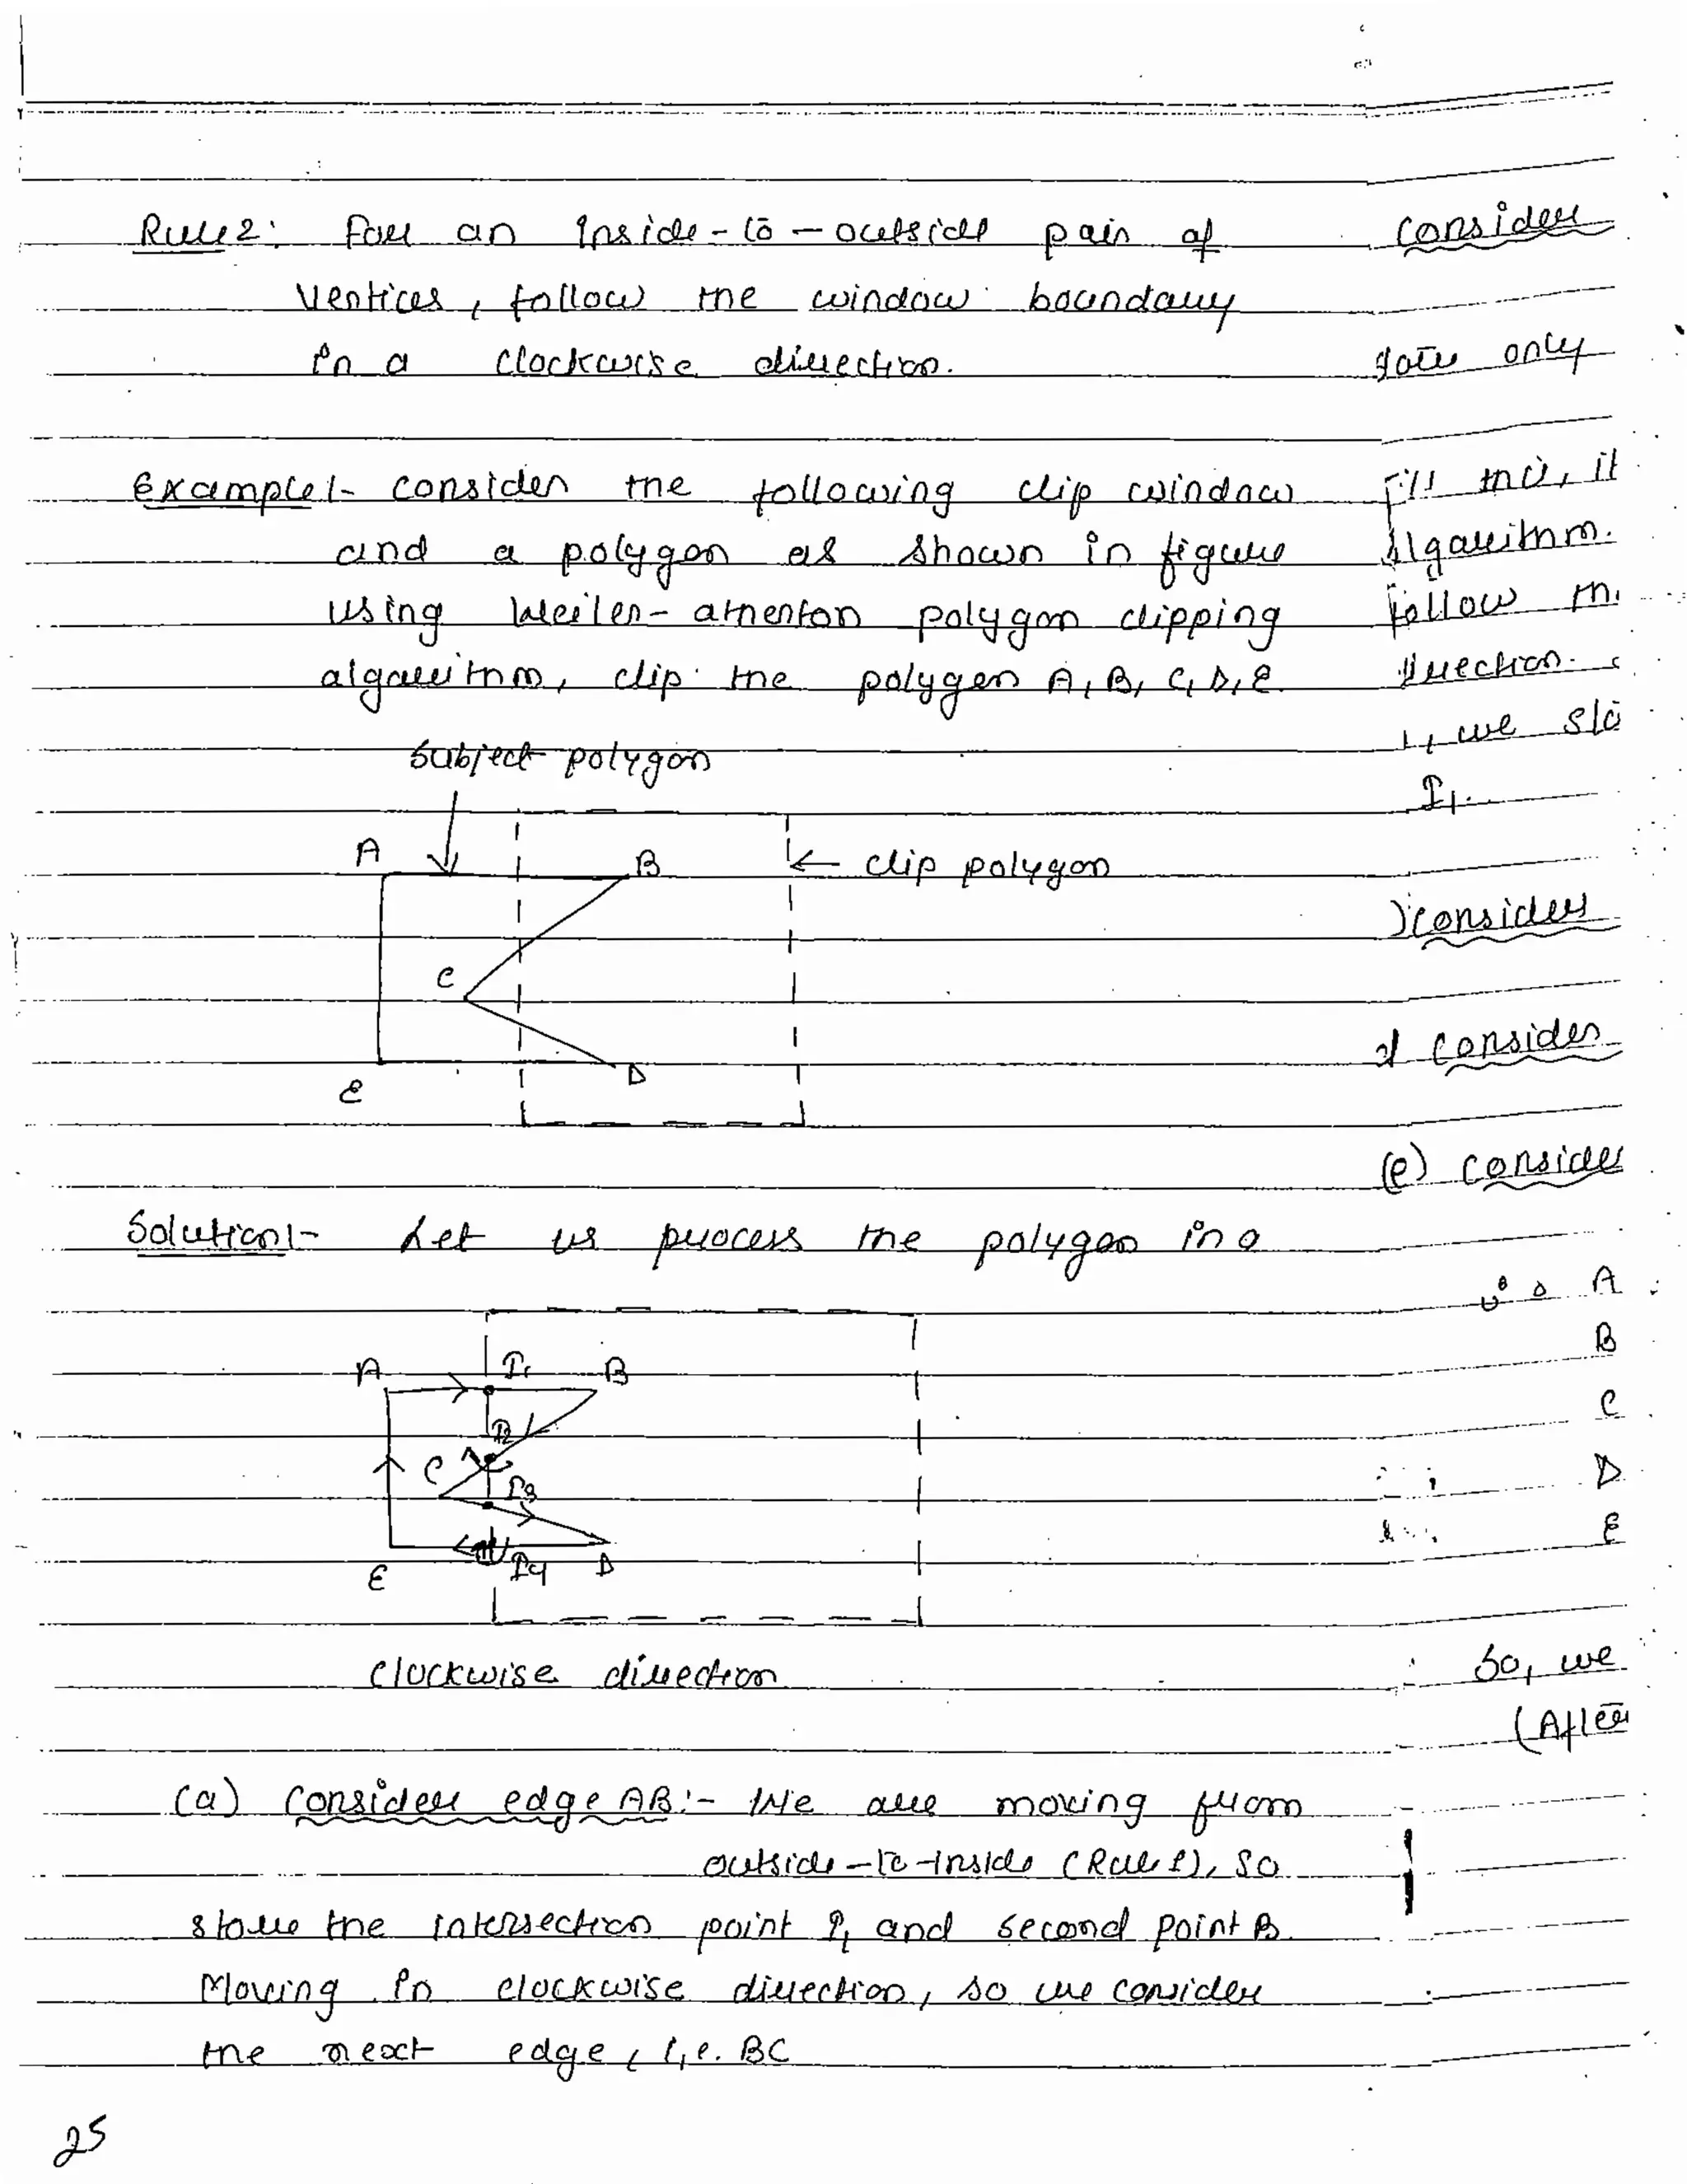 Rule 2: For an Inside-to-outside pair of
vertices, follow the window boundary
in a clockwise direction.
Example:- Consider the following clip window
and a polygon as shown in figure
using Weiler-atherton polygon clipping
algorithm, clip the polygon A, B, C, D, E.
Subject polygon
A
B
clip polygon
C
E
D
Solution:- Let us process the polygon in a
A
I1
B
I2
C
I3
E
I4
D
clockwise direction
(a) Consider edge AB:- We are moving from
outside-to-inside (Rule 1), so
store the intersection point I1 and second point B.
Moving in clockwise direction, so we consider
the next edge, i.e. BC
25
Consider
only
it
algorithm.
follow
direction.
, we
I1.
Consider
Consider
(e) Consider
A
B
C
D
E
So, we
(After